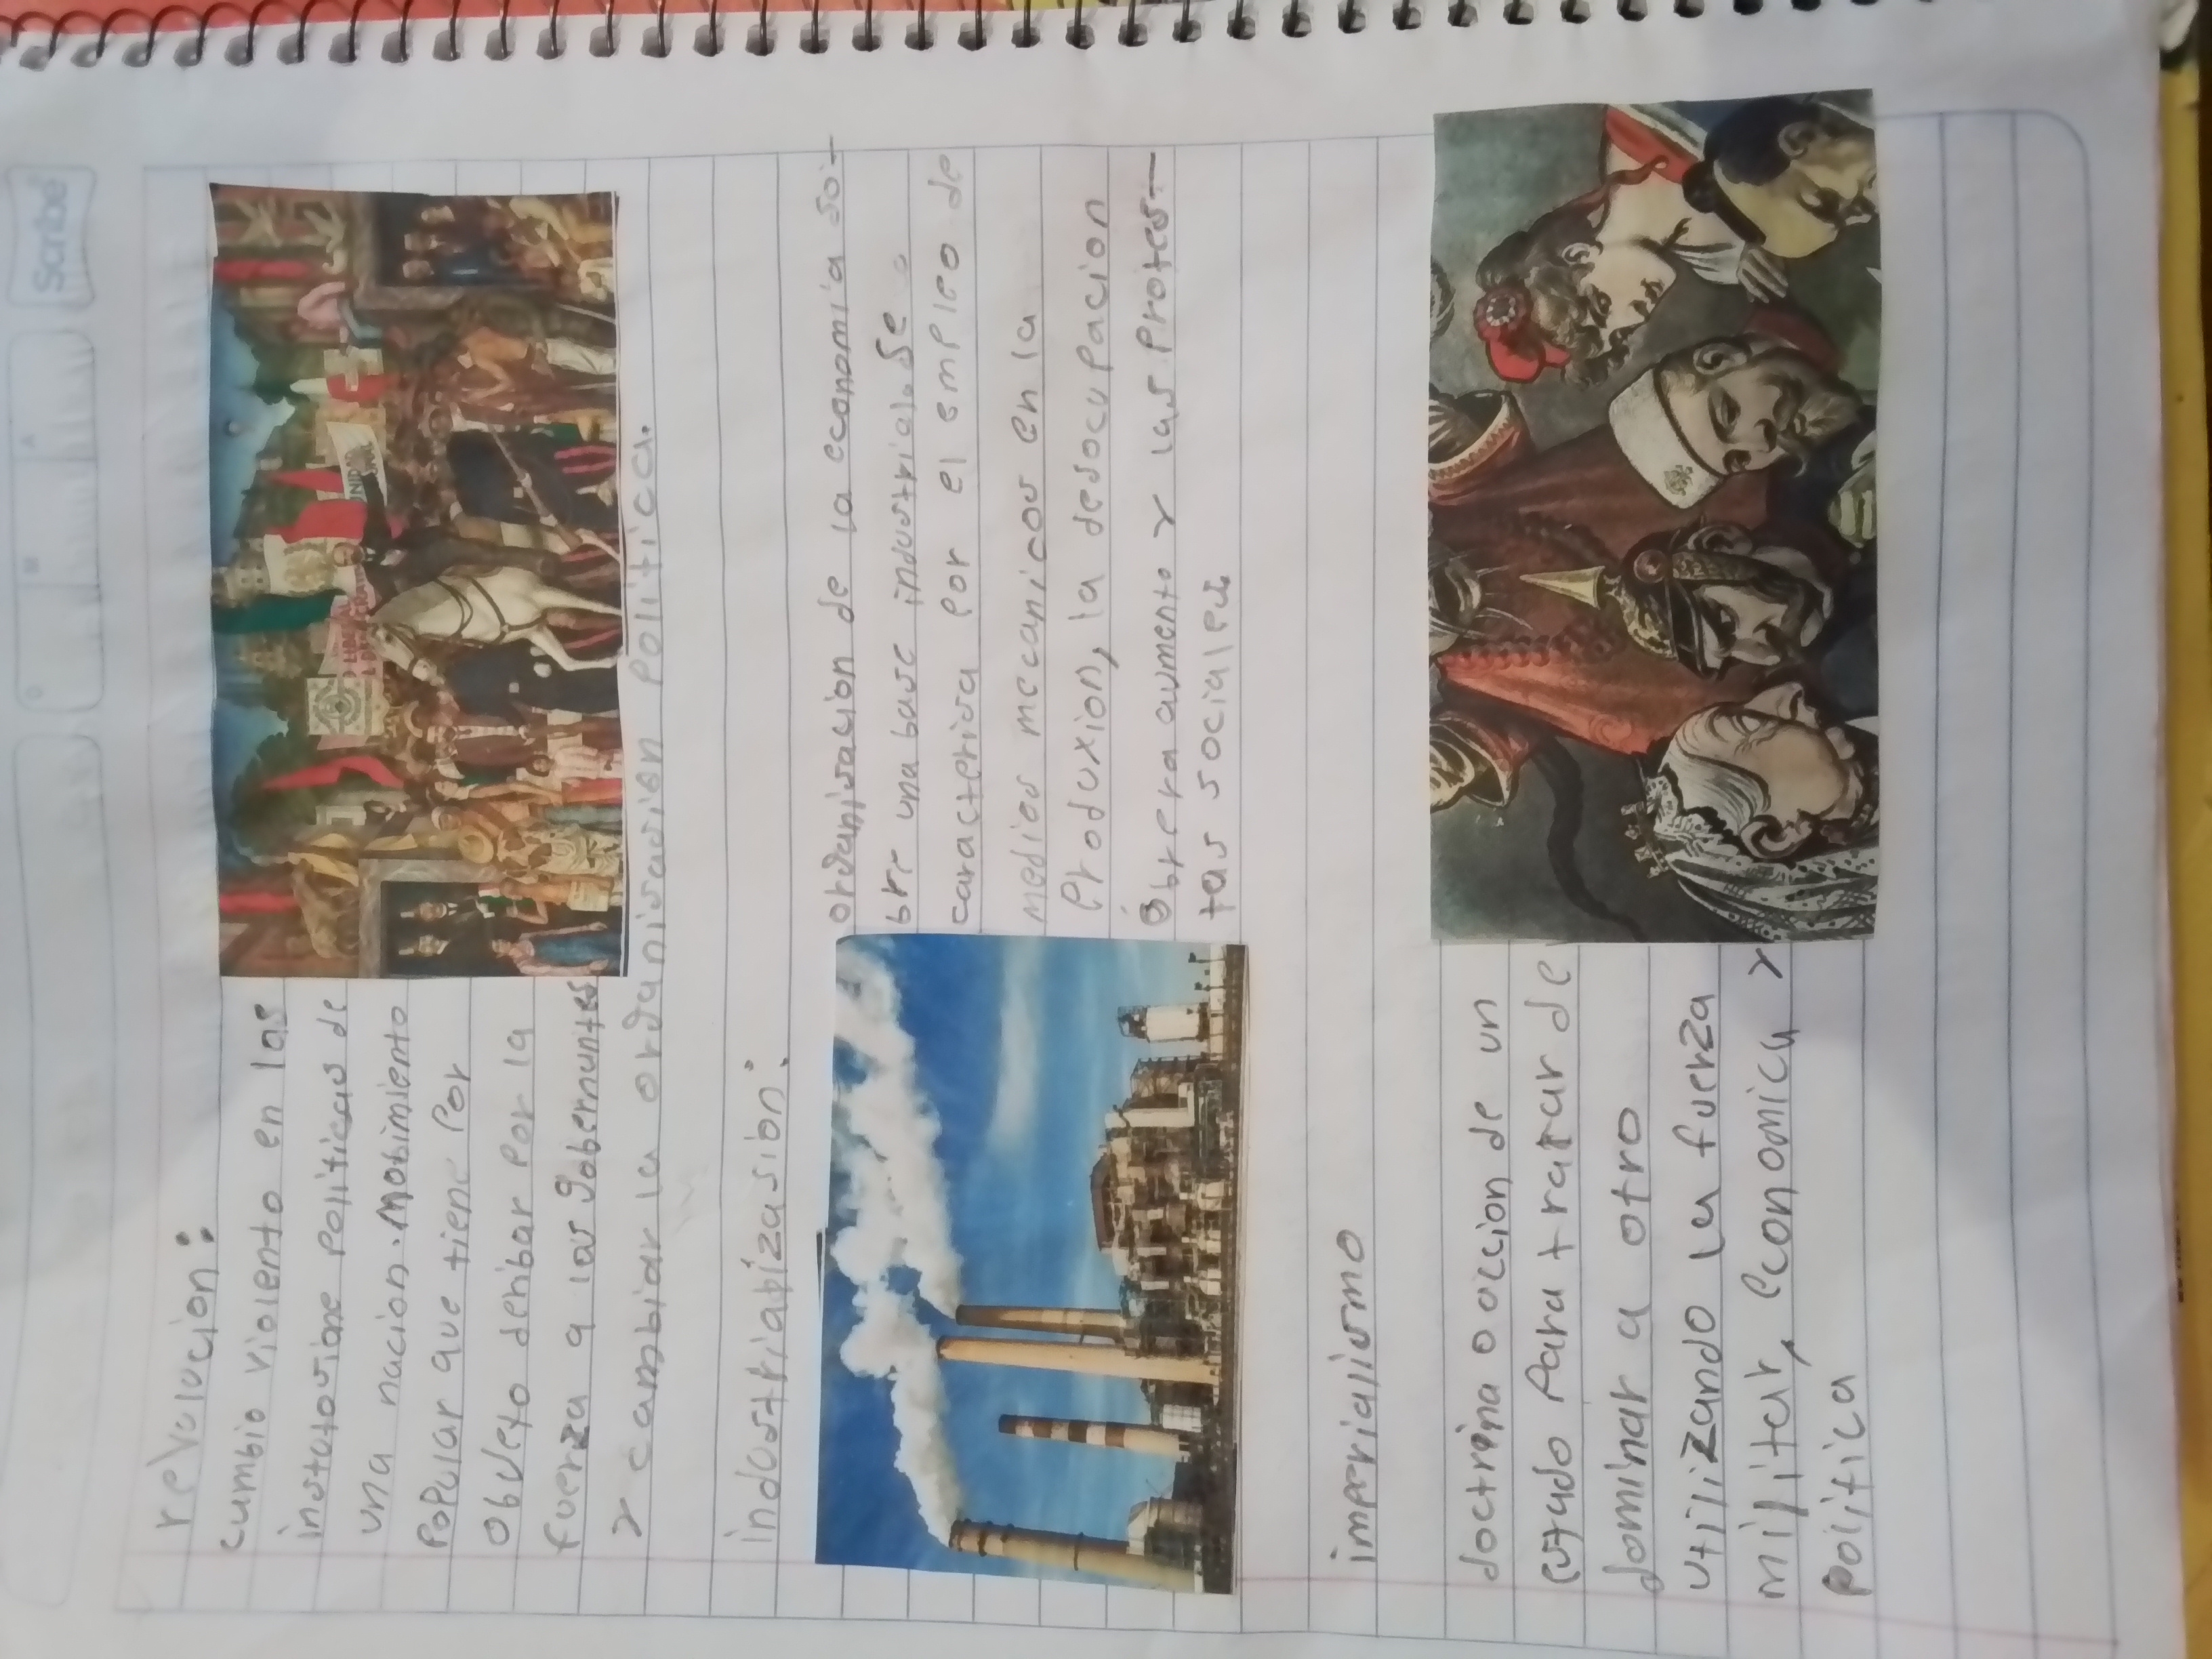 Scribe
D M A
revolucion:
cambio violento en las
instatusione politicas de
una nacion. mobimiento
popular que tiene por
obveto deribar por la
fuerza a las gobernantes
y cambiar la organisasión politica.
industriabízasion:
organisacion de la economia so-
bre una base industriela. Se
caracteriza por el empleo de
medios mecanicos en la
produxion, la desocupacion
obrera aumento y las protes-
tas sociales
imperialismo
doctrina o accion de un
estado para tratar de
dominar a otro
utilizando la fuerza
militar, economica y
politica